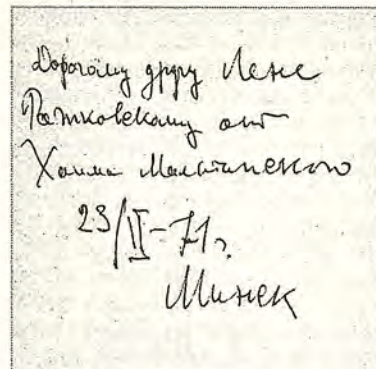 Дорогому другу Лене
от
Хаима Мальтинского
23/II-71г.
Минск